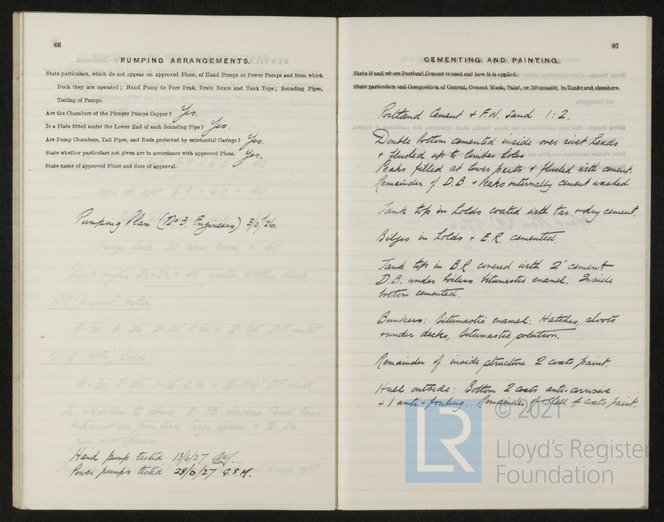 66
PUMPING ARRANGEMENTS.
State particulars, which do not appear on approved Plans, of Hand Pumps or Power Pumps and from which
Deck they are operated; Hand Pump to Fore Peak, Drain Boxes and Tank Tops; Sounding Pipes,
Testing of Pumps.
Are the Chambers of the Plunger Pumps Copper? Yes.
Is a Plate fitted under the Lower End of each Sounding Pipe? Yes.
Are Pump Chambers, Tail Pipes, and Rods protected by substantial Casings? Yes.
State whether particulars not given are in accordance with approved Plans. Yes.
State name of approved Plans and date of approval.
Pumping Plan (No 3, Engineers) 3/5/26.
Hand pump tested 13/6/27
Power pumps tested 28/6/27 G.S.M.
67
CEMENTING AND PAINTING.
State if and where Portland Cement is used and how it is applied.
State particulars and Composition of Cement, Cement Wash, Paint, or Bitumastic, in Tanks and elsewhere.
Portland Cement & F.W. Sand 1:2.
Double bottom cemented inside over rivet heads
& flushed up to limber holes
Peaks filled at lower parts & flushed with cement.
Remainder of D.B. & Peaks internally cement washed
Tank top in holds coated with tar & dry cement.
Bilges in holds & E.R. cemented.
Tank top in B.R. covered with 2" cement
D.B. under boilers bitumastic enamel. Inside
bottom cemented.
Bunkers: bitumastic enamel: Hatches, shoots
& under decks, bitumastic solution.
Remainder of inside structure 2 coats paint.
Hull outside: Bottom 2 coats anti-corrosive
& 1 anti-fouling. Remainder of shell coats paint.
LR
© 2021
Lloyd's Register
Foundation